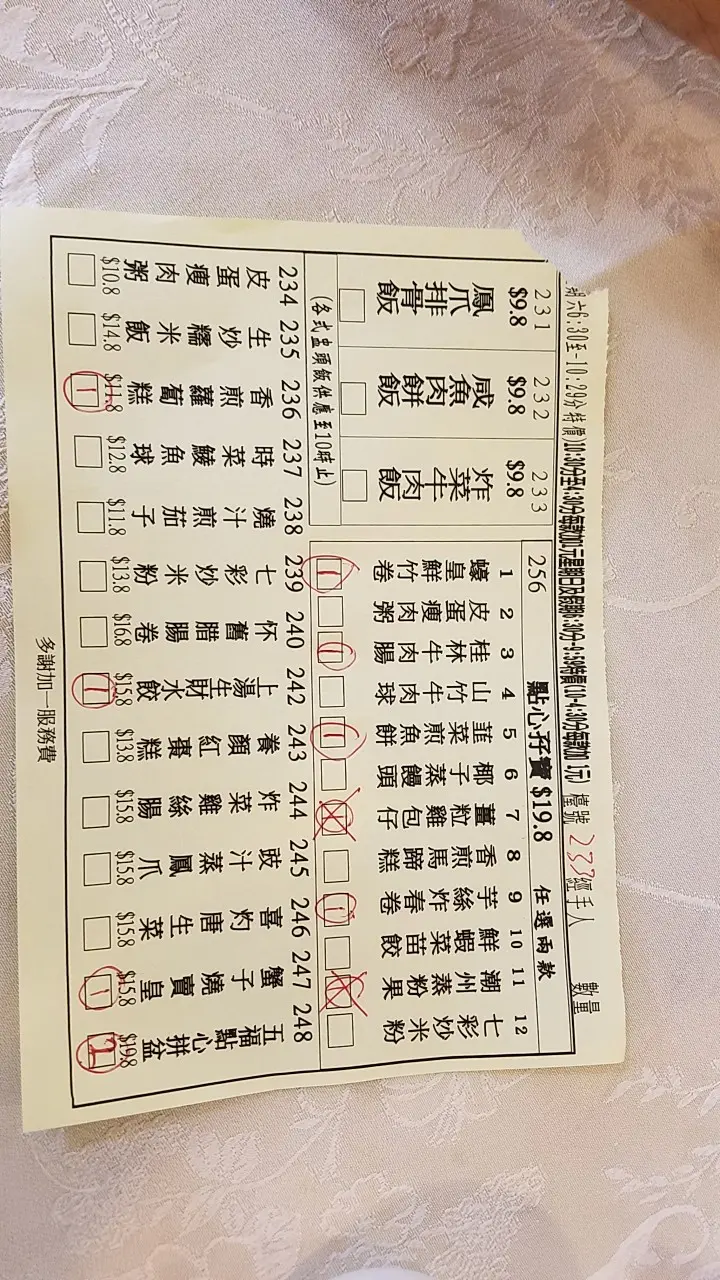 期六6:30至-10:29分特價)10:30分至4:30分每款加1元星期日及假期6:30分-9:59特價(10-4:30分每款加1元) 檯號 233 經手人 數量
231 $9.8 鳳爪排骨飯
232 $9.8 咸魚肉餅飯
233 $9.8 炸菜牛肉飯
(各式盅頭飯供應至10時止)
256 點心孖寶 $19.8 任選兩款
1 蠔皇鮮竹卷 1
2 皮蛋瘦肉粥
3 桂林牛肉腸 1
4 山竹牛肉球
5 韮菜煎魚餅 1
6 椰子蒸饅頭
7 薑粒雞包仔
8 香煎馬蹄糕
9 芋絲炸春卷 1
10 鮮蝦菜苗餃
11 潮州蒸粉果
12 七彩炒米粉
234 皮蛋瘦肉粥 $10.8
235 生炒糯米飯 $14.8
236 香煎蘿蔔糕 $11.8 1
237 時菜鯪魚球 $12.8
238 燒汁煎茄子 $11.8
239 七彩炒米粉 $13.8
240 懷舊腊腸卷 $16.8
242 上湯生財水餃 $15.8 1
243 養顏紅棗糕 $13.8
244 炸菜雞絲腸 $15.8
245 豉汁蒸鳳爪 $15.8
246 喜灼唐生菜 $15.8
247 蟹子燒賣皇 $15.8 1
248 五福點心拼盆 $19.8 2
多謝加一服務費